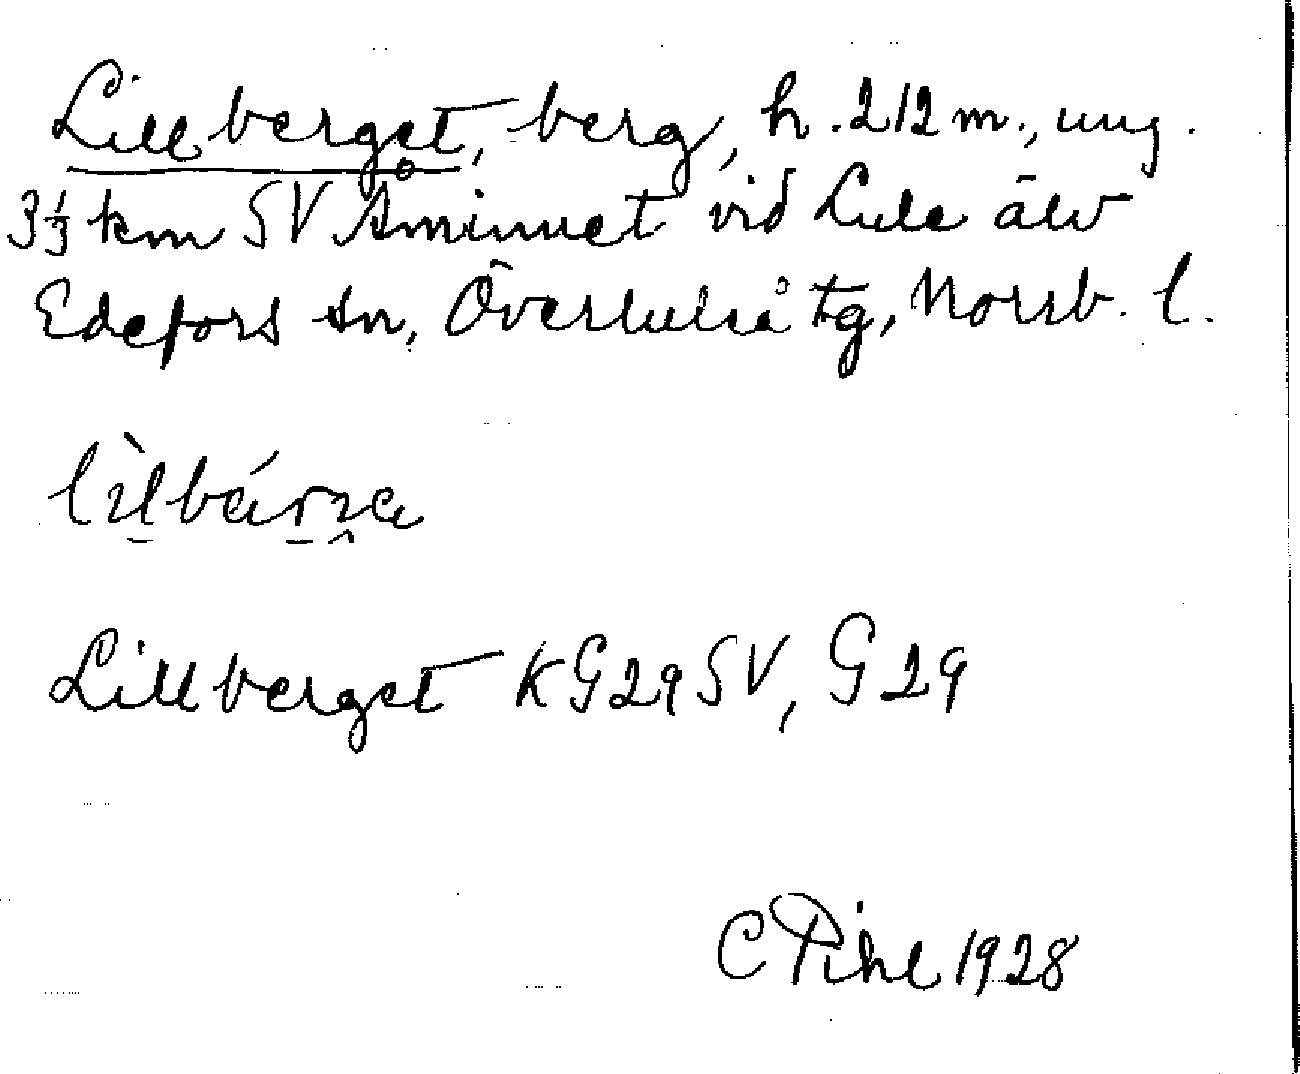 Lillberget, berg, h. 212 m., ung.
3⅓ km SV Åminnet vid Lule älv
Edefors sn, Överluleå tg, Norrb. l.
lìlbárɪa
Lillberget KG29SV, G29
C Pihl 1928